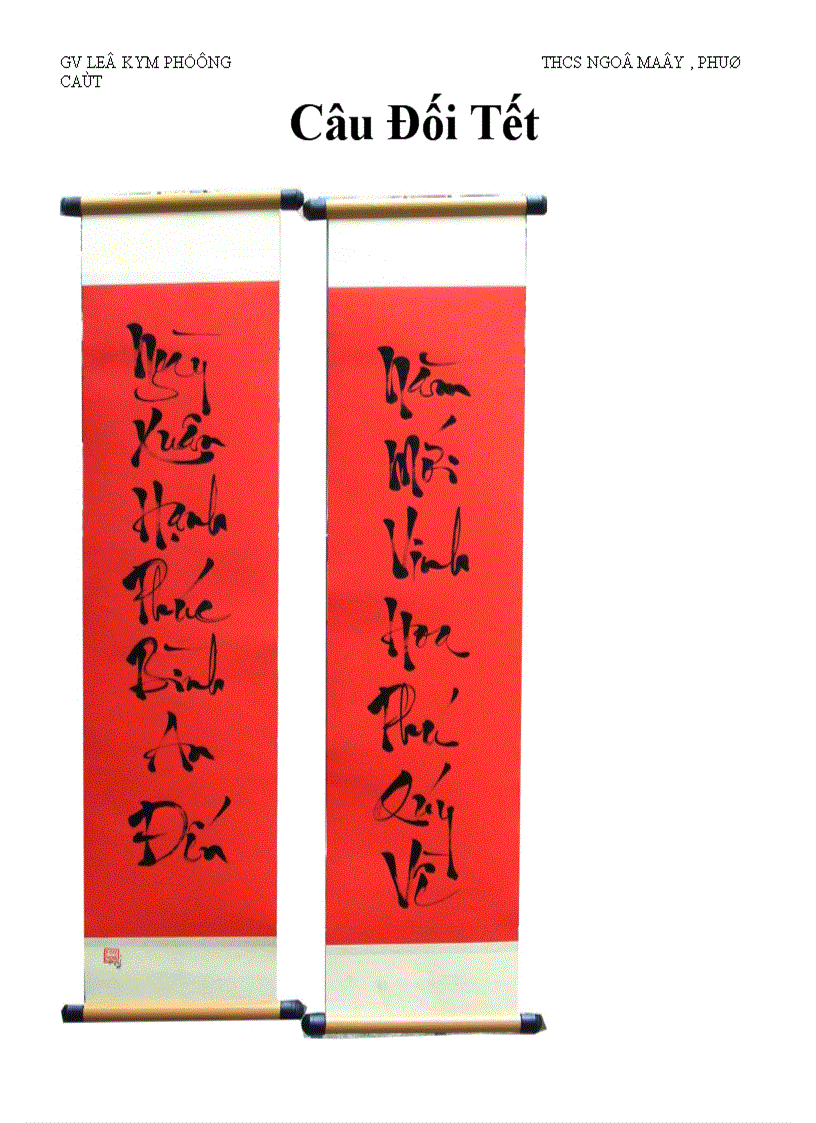 GV LEÂ KYM PHÖÔNG THCS NGOÂ MAÂY , PHUØ
CAÙT
Câu Đối Tết
Ngày
Xuân
Hạnh
Phúc
Bình
An
Đến
Năm
Mới
Vinh
Hoa
Phú
Quý
Về